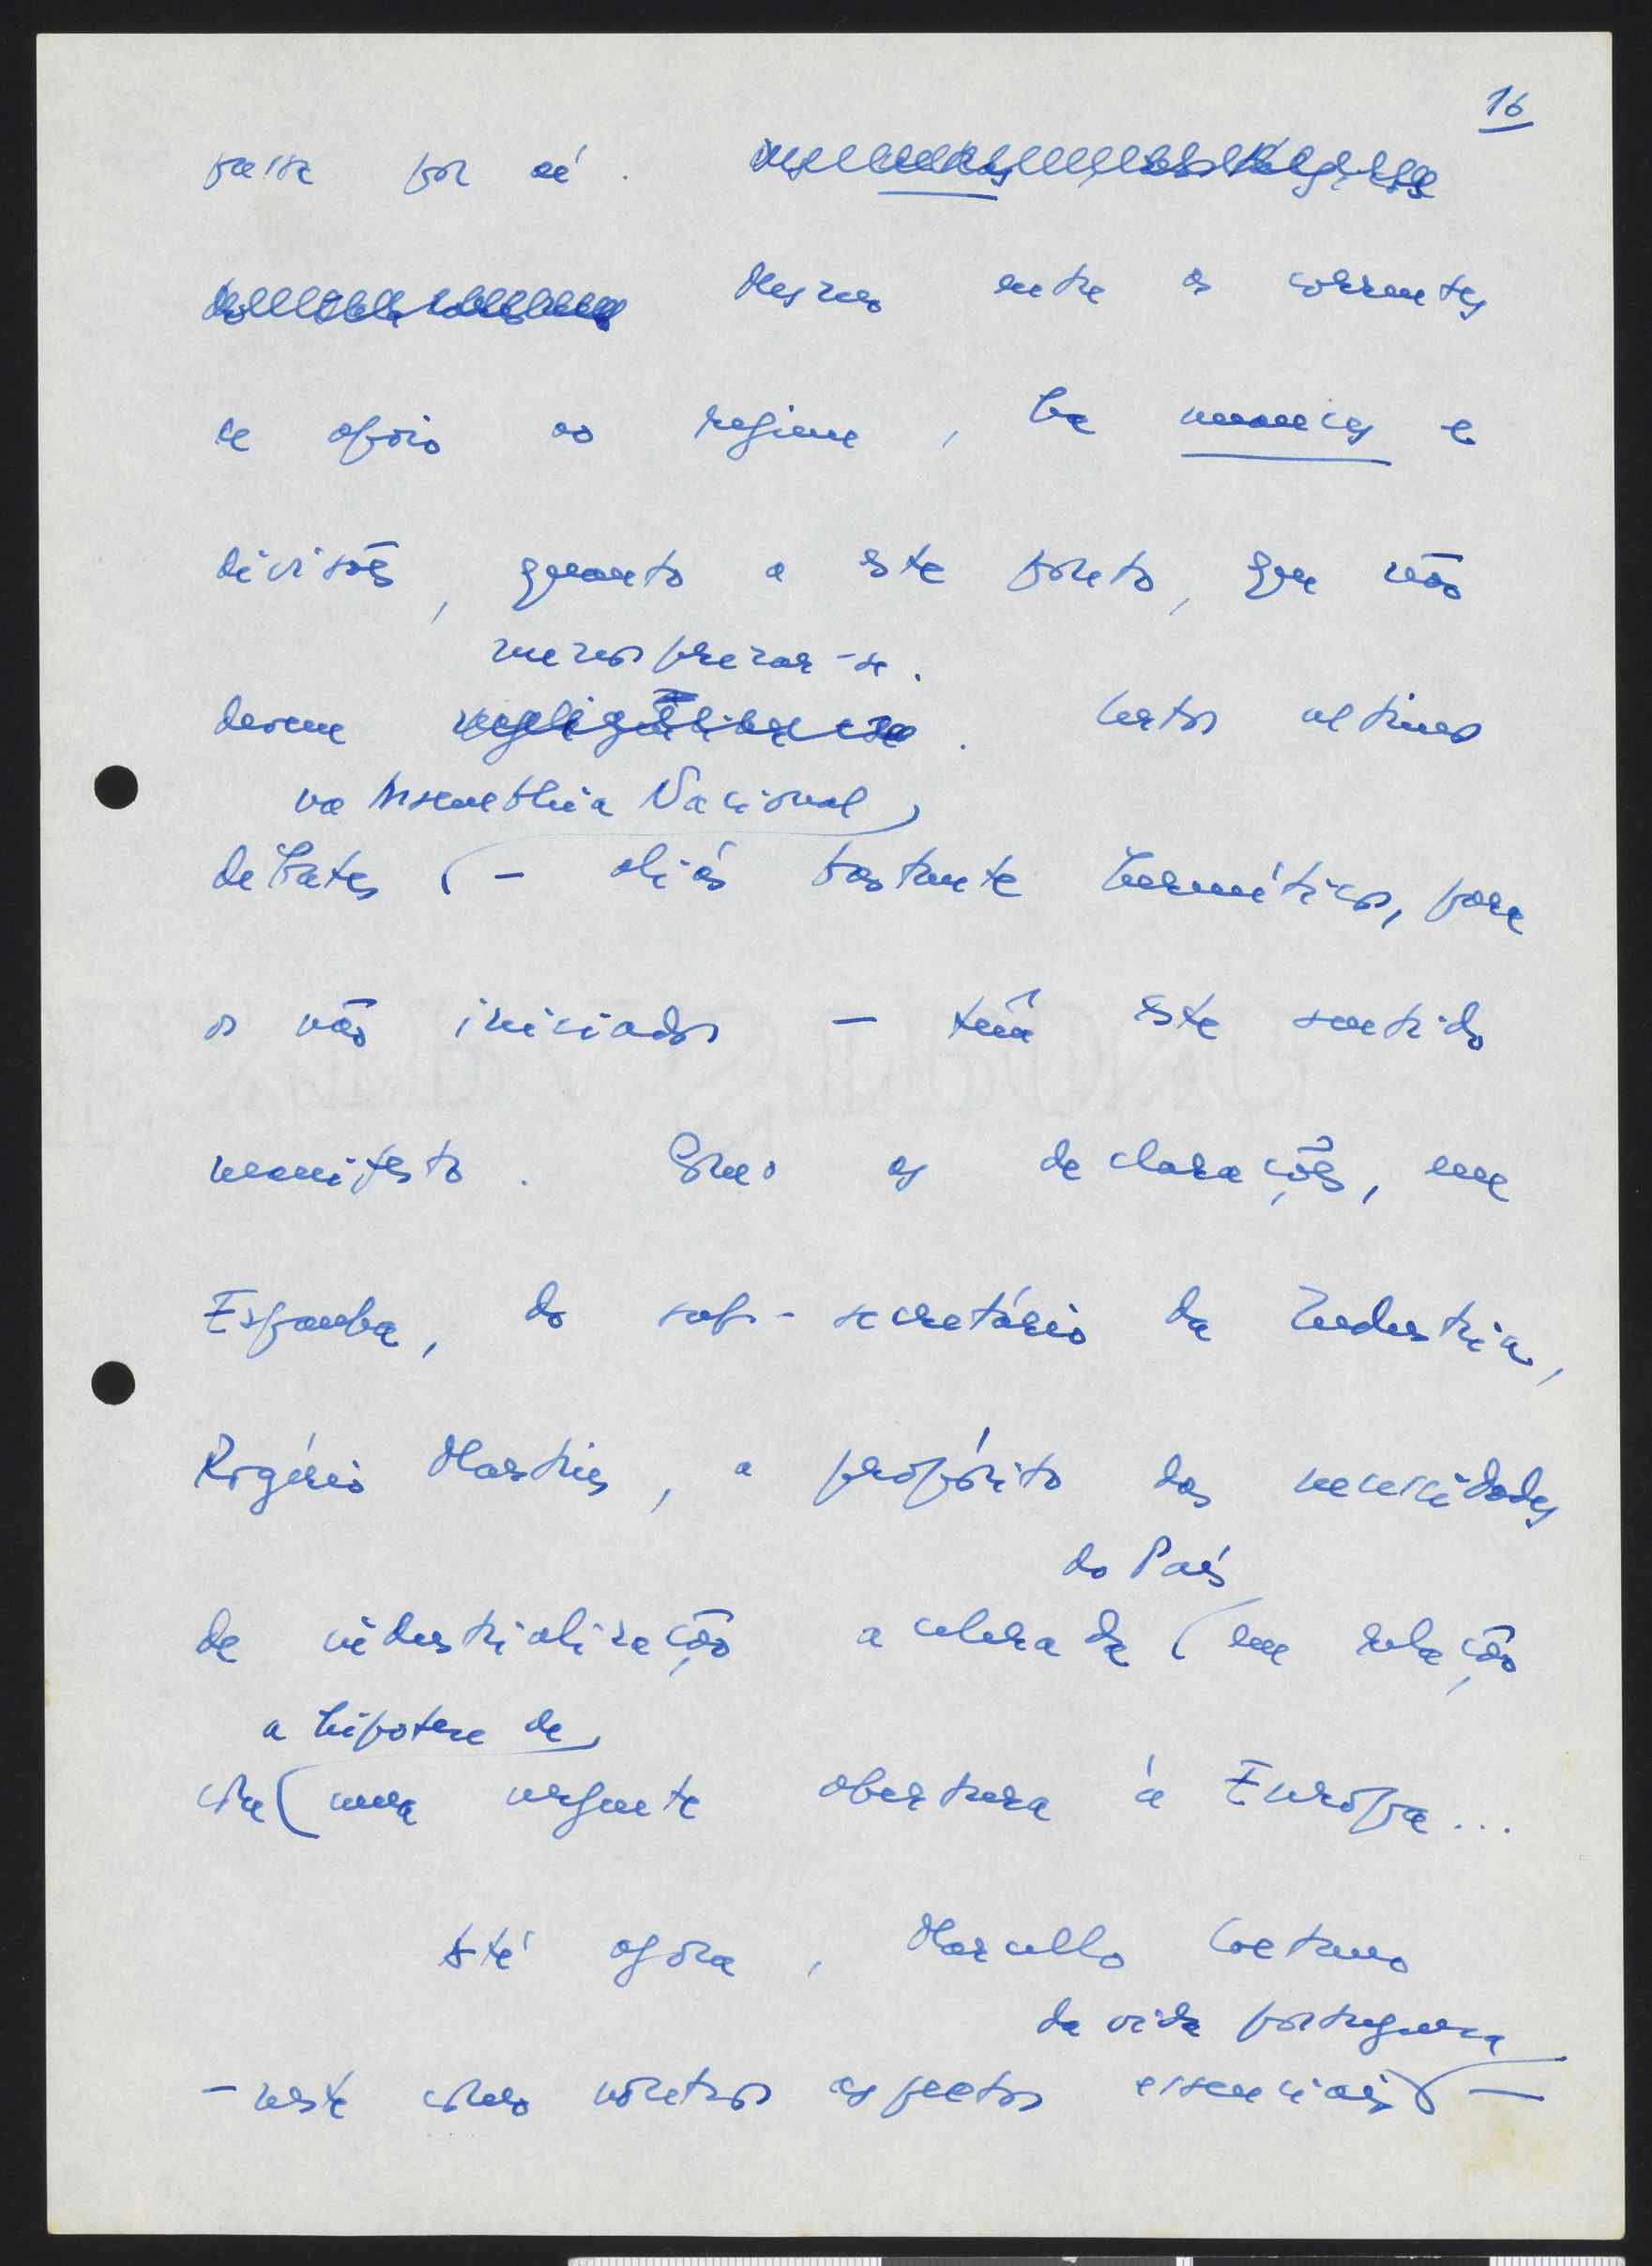 16
passa por aí.
Mesmo entre as correntes
de apoio ao regime, há nuances e
divisões, quanto a êste ponto, que não
menosprezar-se.
devem negligenciar-se. Certos ultimos
na Assembleia Nacional
debates - aliás bastante herméticos, para
os não iniciados - têm êste sentido
manifesto. Como as declarações, em
Espanha, do sub-secretário da Industria,
Rogério Martins, a propósito das necessidades
do País
de industrialização acelerada em relação
a hipotese de
com uma urgente abertura à Europa...
Até agora, Marcello Caetano
da vida portuguesa
- neste como noutros aspectos essenciais -